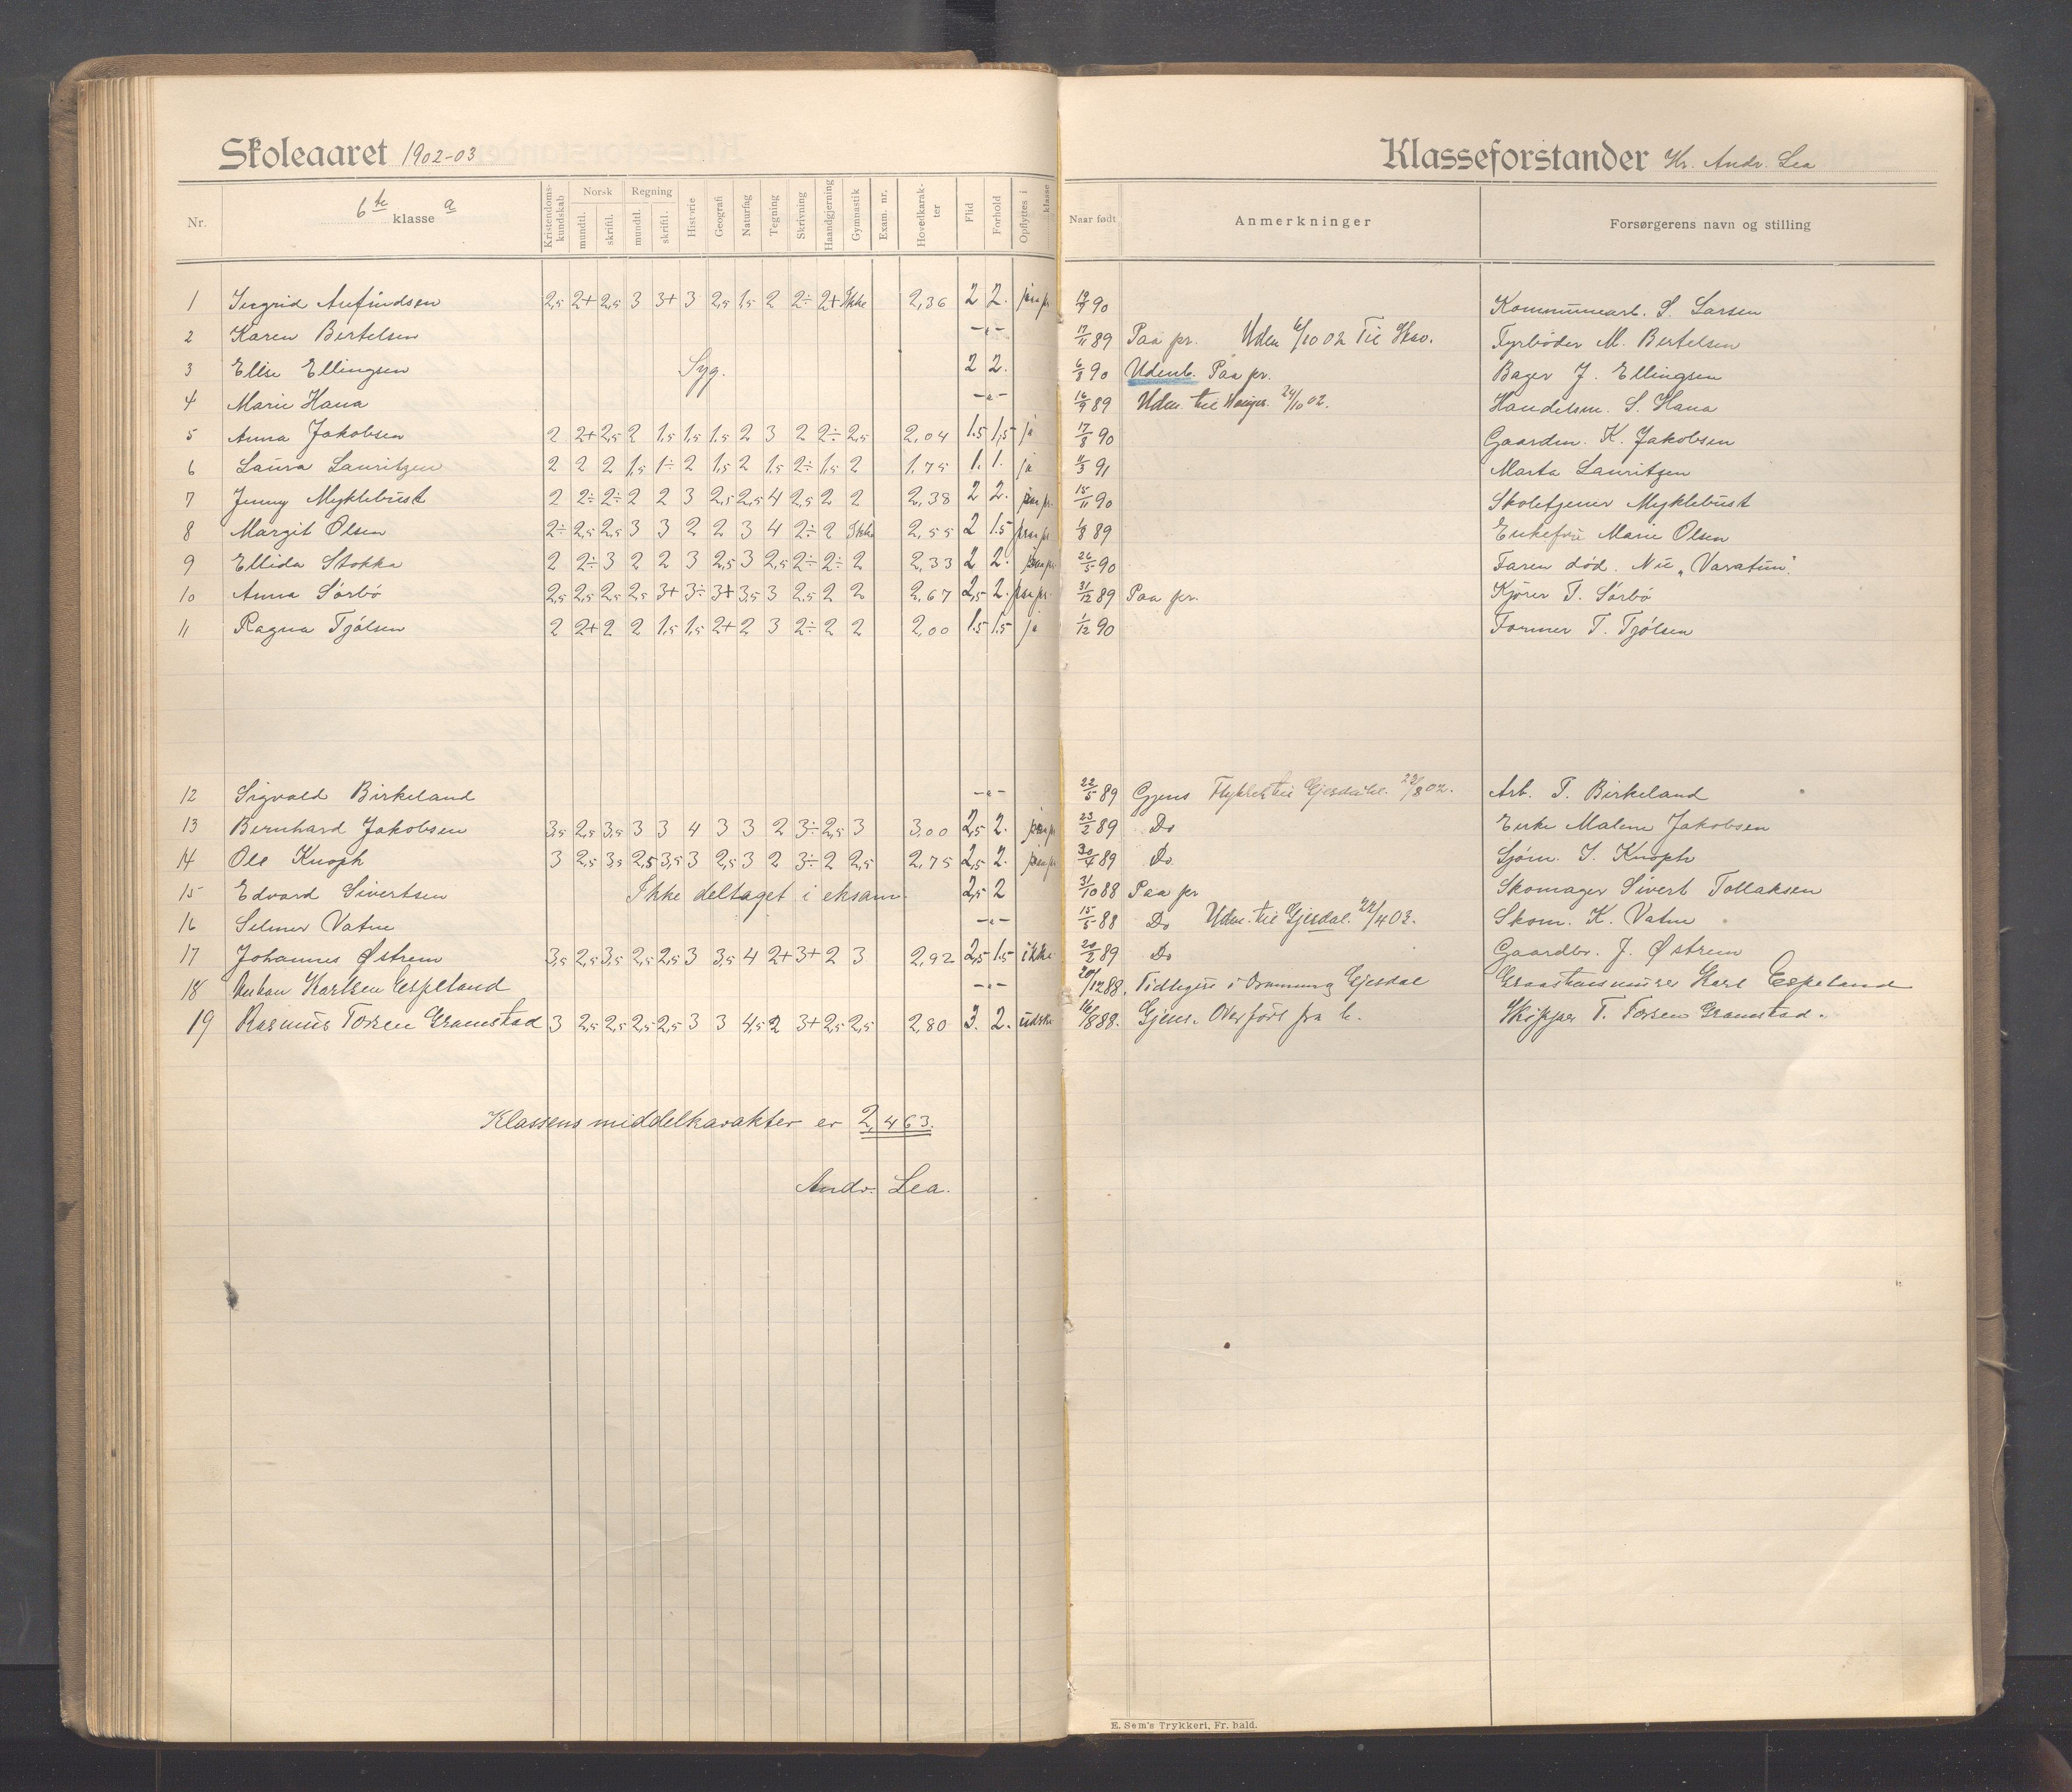 Skoleaaret 1902-03
Nr. 6te klasse a Kristendomskundskab Norsk mundtl. skriftl. Regning mundtl. skriftl. Historie Geografi Naturfag Tegning Skrivning Haandgjerning Gymnastik Exam. nr. Hovedkarakter Flid Forhold Opflyttes i klasse
1 Ingrid Anfindsen 2,5 2+ 2,5 3 3+ 3 2,5 1,5 2 2÷ 2+ Ikke 2,36 2 2. paa pr.
2 Karen Bertelsen -"-
3 Ellse Ellingsen Syg. 2 2.
4 Marie Hana -"-
5 Anna Jakobsen 2 2+ 2,5 2 1,5 1,5 1,5 2 3 2 2÷ 2,5 2,04 1.5 1,5 ja
6 Laura Lauritzen 2 2 2 1,5 1÷ 2 1,5 2 1,5 2÷ 1,5 2 1,75 1. 1. ja
7 Jenny Myklebust 2 2÷ 2÷ 2 2 3 2,5 2,5 4 2,5 2 2 2,38 2 2. paa pr.
8 Margit Olsen 2÷ 2,5 2,5 3 3 2 2 3 4 2÷ 2 Ikke 2,55 2 1.5 paa pr.
9 Ellida Stokka 2 2÷ 3 2 2 3 2,5 3 2,5 2÷ 2÷ 2 2,33 2 2. paa pr.
10 Anna Sørbø 2,5 2,5 2,5 2,5 3+ 3÷ 3+ 3,5 3 2,5 2 2 2,67 2,5 2. paa pr.
11 Ragna Tjølsen 2 2+ 2 2 1,5 1,5 2+ 2 3 2÷ 2 2 2,00 1.5 1.5 ja
12 Sigvald Birkeland -"-
13 Bernhard Jakobsen 3,5 2,5 3,5 3 3 4 3 3 2 3÷ 2,5 3 3,00 2,5 2. paa pr.
14 Ole Knoph 3 2,5 3,5 2,5 3,5 3 2,5 3 2 3÷ 2 2,5 2,75 2,5 2. paa pr.
15 Edvard Sivertsen Ikke deltaget i eksam. 2,5 2
16 Selmer Vatne -"-
17 Johannes Østrem 3,5 2,5 3,5 2,5 2,5 3 3,5 4 2+ 3+ 2 3 2,92 2,5 1.5 ikke
18 Karlsen Espeland -"-
19 Rasmus Torsen Gramstad 3 2,5 2,5 2,5 2,5 3 3 4,5 2 3+ 2,5 2,5 2,80 3. 2. udskr
Klassens middelkarakter er 2,463.
Andr. Lea.
Klasseforstander Kr. Andr. Lea
Naar født Anmerkninger Forsørgerens navn og stilling
90 Kommunearb. S. Larsen
17/11 89 Paa pr. Uden 6/10 02 Til Fyrbøder M. Bertelsen
6/8 90 Udenb. Paa pr. Bager J. Ellingsen
16/9 89 Udm. til 24/10 02. Handelsm. S. Hana
17/8 90 Gaardm. K. Jakobsen
11/3 91 Marta Lauritzen
15/11 90 Skoletjener Myklebust
1/8 89 Enkefru Marie Olsen
26/5 90 Faren død. Nu "Varatun".
31/12 89 Paa pr. Kjører T. Sørbø
1/12 90 Former T. Tjølsen
22/5 89 Gjens Flyttet til Gjesdahl. 22/8 02. Arb. T. Birkeland
23/2 89 Do Enke Malene Jakobsen
30/4 89 Do. Sjøm. S. Knoph
31/10 88 Paa pr Skomager Sivert Tollaksen
15/5 88 Do Udm. til Gjesdal. 22/4 03. Skom. K. Vatne
20/2 89 Do Gaardbr. J. Østrem
20/12 88. Tidligere i Gjesdal Graastensmurer Karl Espeland
16/8 88. Gjens. Overført fra b. Skipper T. Torsen Gramstad.
E. Sem's Trykkeri, Fr. hald.